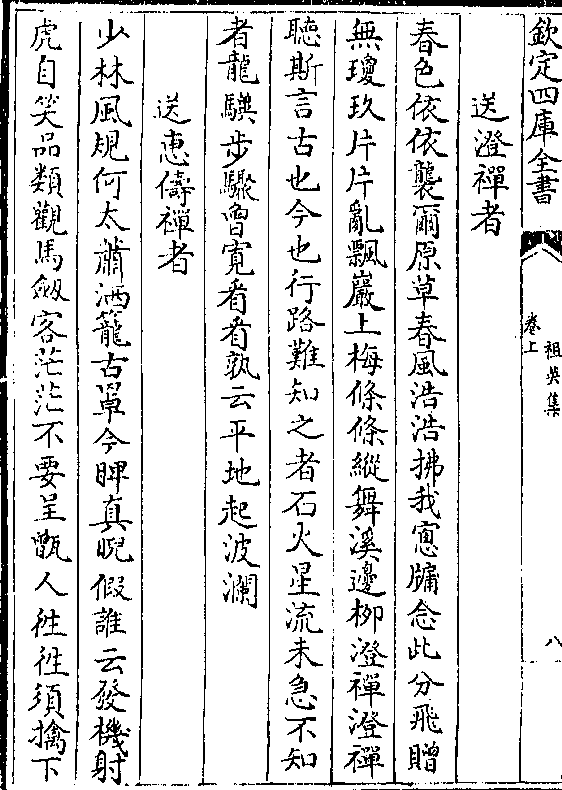 欽定四庫全書
祖英集
卷上
八
送澄禪者
春色依依襲爾原草春風浩浩拂我窻牖念此分飛贈
無瓊玖片片亂飄巖上梅條條縱舞溪邊柳澄禪澄禪
聽斯言古也今也行路難知之者石火星流未急不知
者龍驤步驟曾寛看看孰云平地起波瀾
送惠儔禪者
少林風規何太蕭洒籠古罩今睥真睨假誰云發機射
虎自笑品類觀馬劔客茫茫不要呈甑人徃徃須擒下